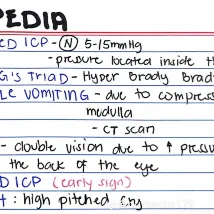 PEDIA
ED ICP - (N) 5-15mmHg
- pressure located inside th
G's TRIAD - Hyper Brady Brad
LE VOMITING - due to compress
medulla
- CT scan
- double vision due to ↑ pressu
the back of the eye
D ICP (early sign)
: high pitched cry